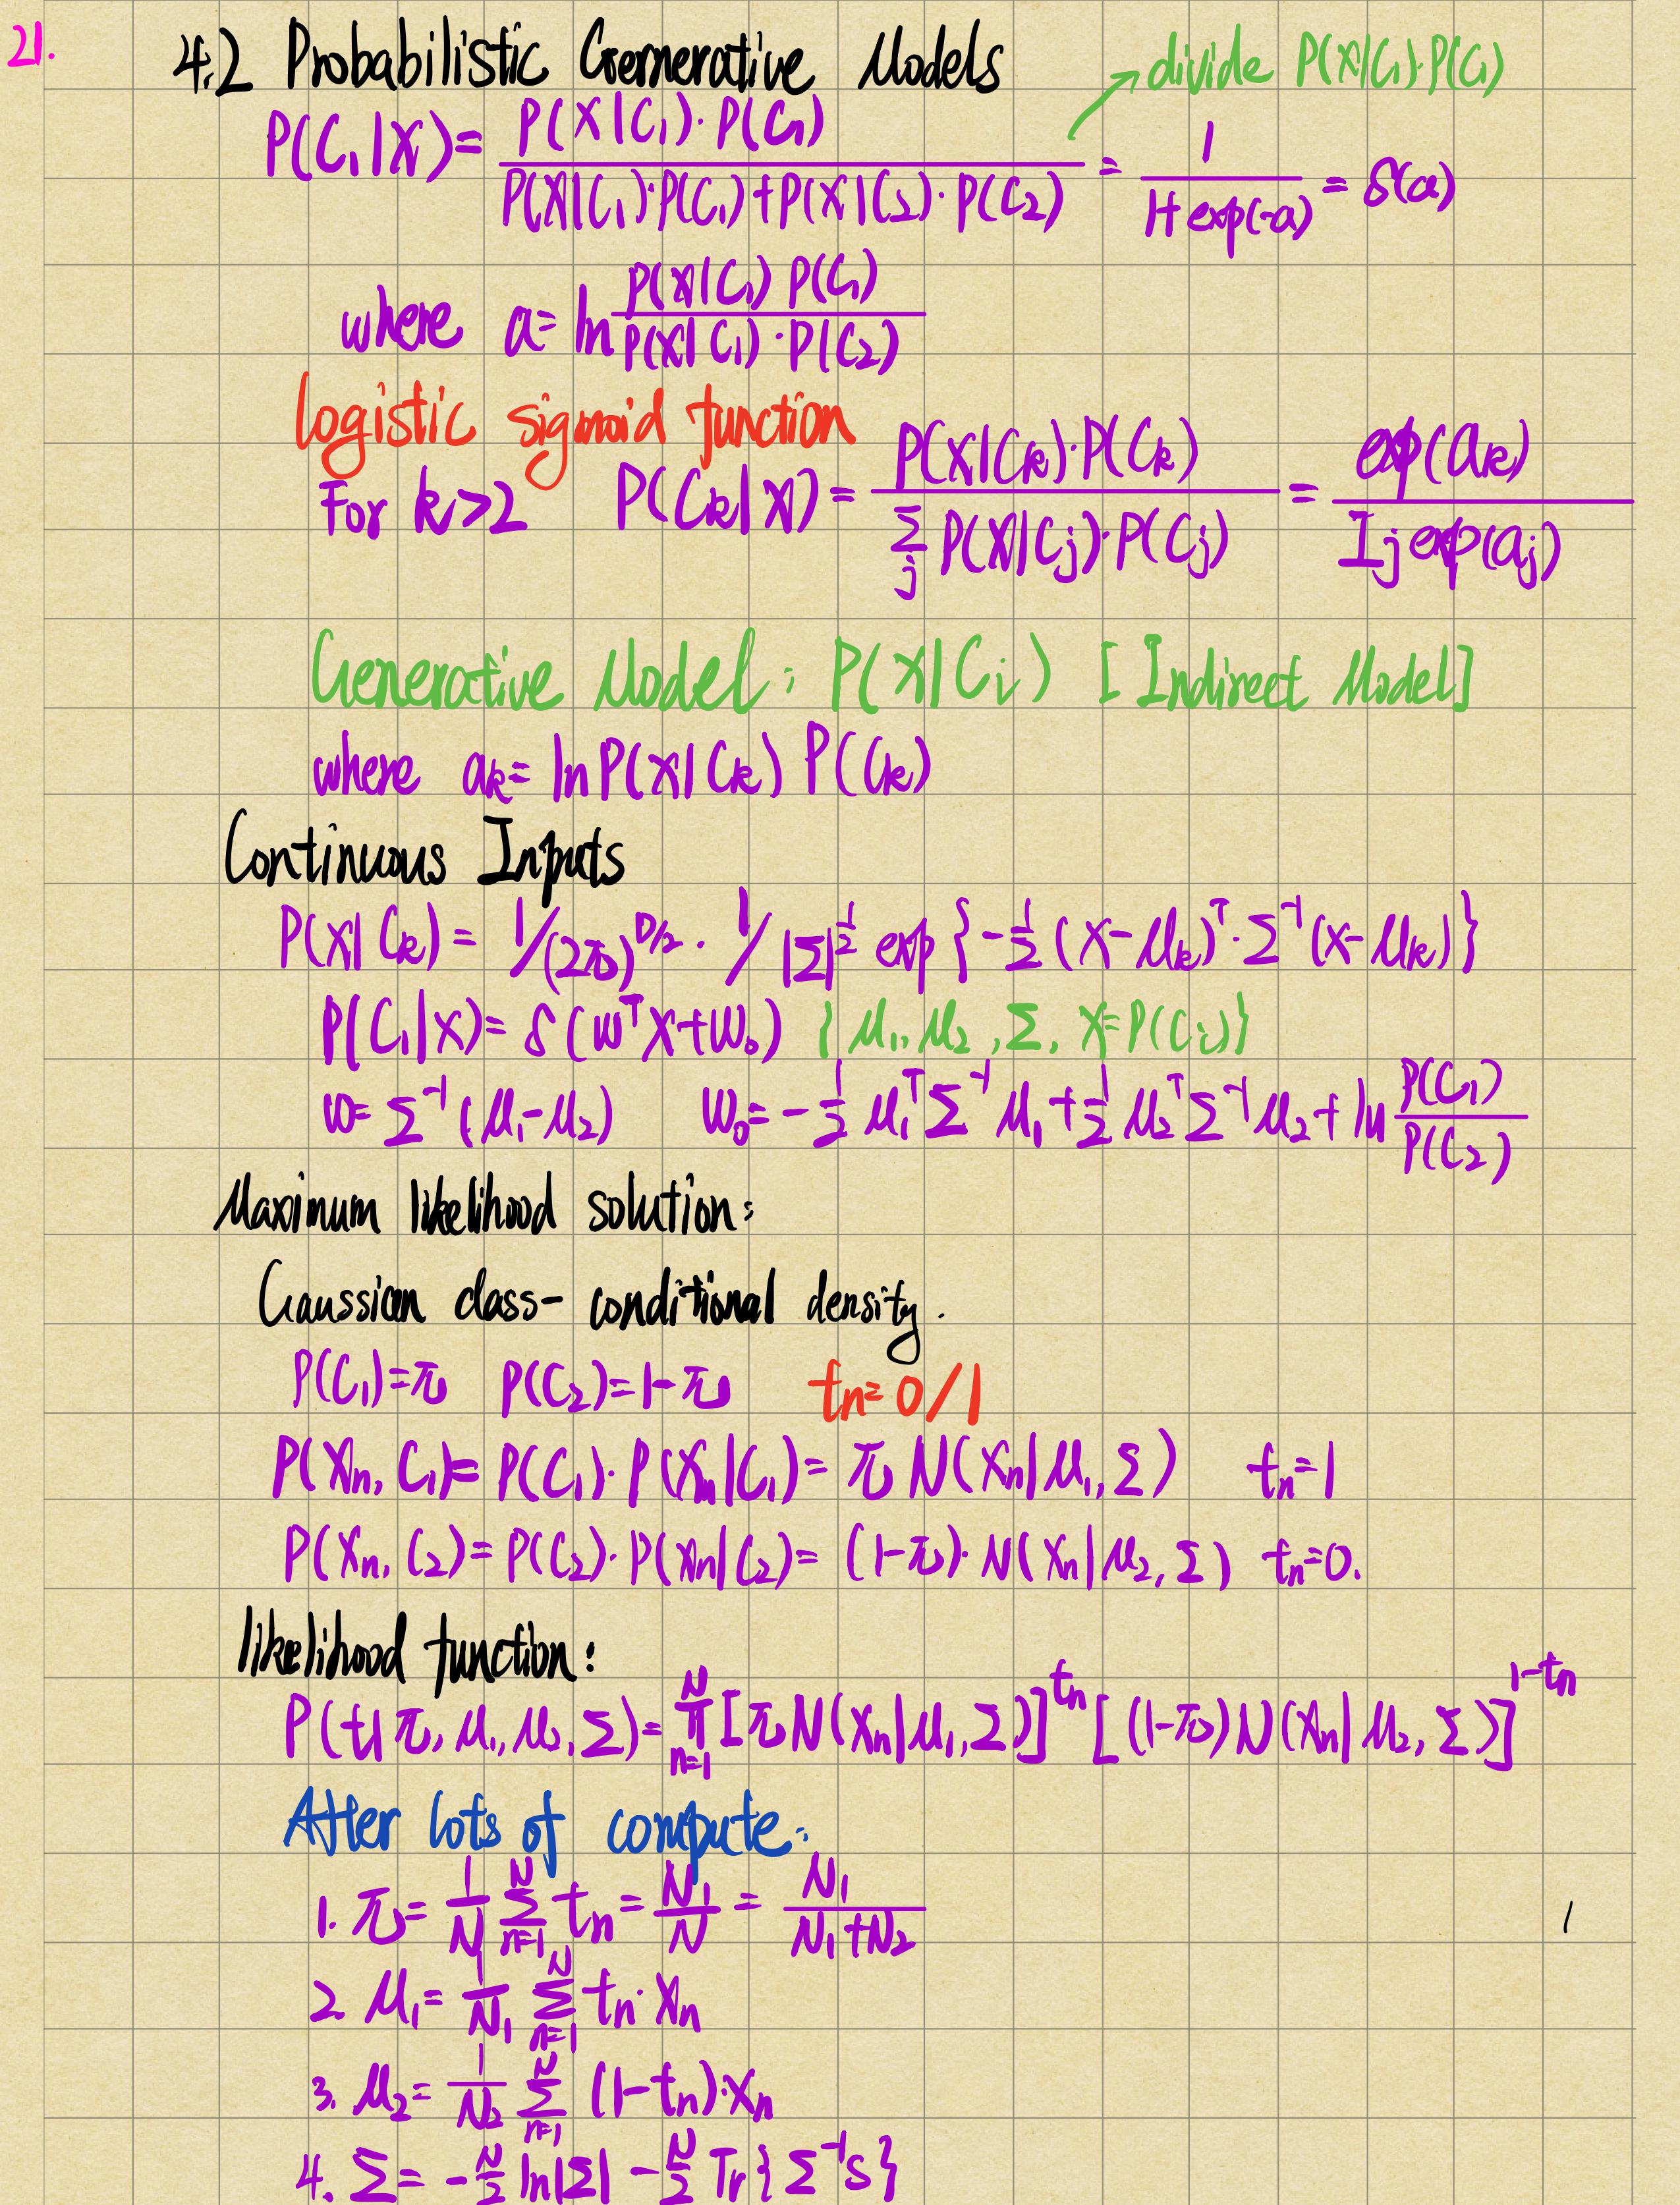 21.
4.2 Probabilistic Gernerative Models
→ divide P(X|C₁)·P(C₁)
P(C₁|X) = P(X|C₁)·P(C₁) / P(X|C₁)·P(C₁)+P(X|C₂)·P(C₂) = 1 / 1+exp(-a) = δ(a)
where a= ln P(X|C₁) P(C₁) / P(X|C₁)·P(C₂)
logistic sigmoid function
For k>2 P(Ck|X) = P(X|Ck)·P(Ck) / Σj P(X|Cj)·P(Cj) = exp(ak) / Σj exp(aj)
Generative Model: P(X|Ci) [Indirect Model]
where ak= ln P(X|Ck) P(Ck)
Continuous Inputs
P(X|Ck) = 1/(2π)^D/2 · 1/|Σ|^½ exp{-½(X-μk)ᵀ·Σ⁻¹(X-μk)}
P(C₁|X) = δ(wᵀX+w₀) {μ₁,μ₂,Σ, X=P(Ci)}
w= Σ⁻¹(μ₁-μ₂) w₀= -½ μ₁ᵀΣ⁻¹μ₁ + ½ μ₂ᵀΣ⁻¹μ₂ + ln P(C₁) / P(C₂)
Maximum likelihood solution:
Gaussian class-conditional density.
P(C₁)=π P(C₂)=1-π tn=0/1
P(Xn, C₁)= P(C₁)·P(Xn|C₁)= π N(Xn|μ₁,Σ) tn=1
P(Xn, C₂)= P(C₂)·P(Xn|C₂)= (1-π)·N(Xn|μ₂,Σ) tn=0.
likelihood function:
P(t|π,μ₁,μ₂,Σ)= ∏ₙ₌₁ᴺ [πN(Xn|μ₁,Σ)]^tn [(1-π)N(Xn|μ₂,Σ)]^1-tn
After lots of compute:
1. π= 1/N Σₙ₌₁ᴺ tn= N₁/N = N₁ / N₁+N₂
2. μ₁= 1/N₁ Σₙ₌₁ᴺ tn·Xn
3. μ₂= 1/N₂ Σₙ₌₁ᴺ (1-tn)·Xn
4. Σ= -N/2 ln|Σ| -N/2 Tr{Σ⁻¹S}